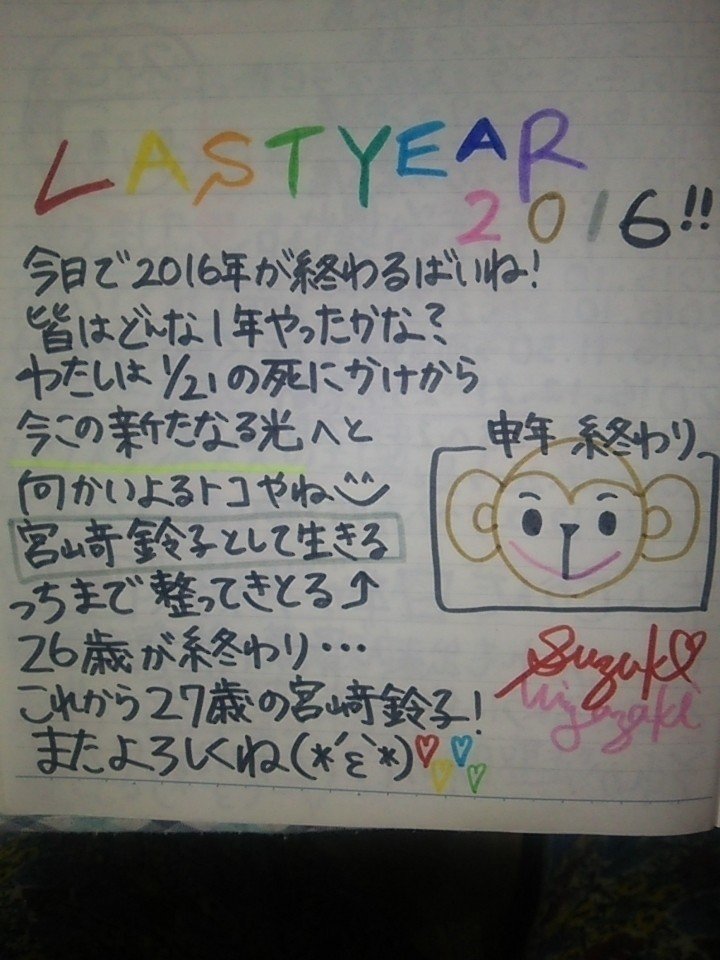 LAST YEAR
2016!!
今日で2016年が終わるばいね!
皆はどんな1年やったかな?
わたしは1/21の死にかけから
今この新たなる光へと
向かいよるトコやね
宮崎鈴子として生きる
っちまで整ってきとる↑
26歳が終わり…
これから27歳の宮崎鈴子!
またよろしくね(*´ε`*)♡♡♡♡
申年 終わり
Suzuko
Miyazaki